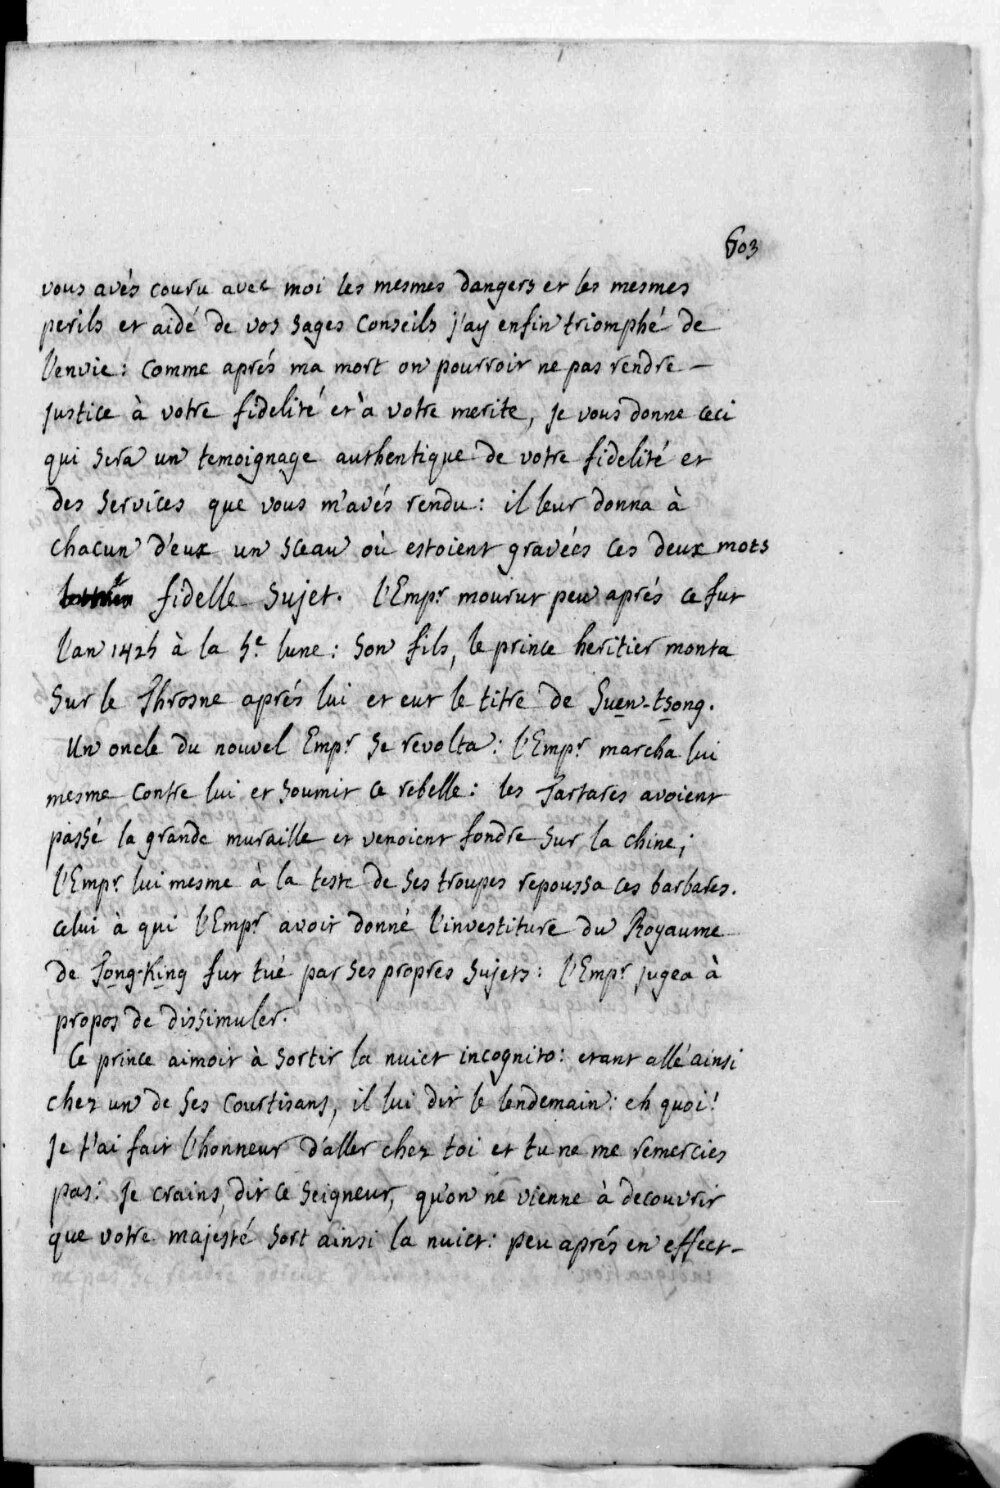 603
vous avés couru avec moi les mesmes dangers et les mesmes
perils et aidé de vos sages conseils j'ay enfin triomphé de
l'envie: comme aprés ma mort on pourroit ne pas rendre –
justice à votre fidelité et à votre merite, je vous donne ceci
qui sera un temoignage authentique de votre fidelité et
des services que vous m'avés rendu: il leur donna à
chacun d'eux un sceau où estoient gravées ces deux mots
fidelle sujet. l'Emp.r mourut peu aprés ce fut
l'an 1425 à la 5.e lune: son fils, le prince heritier monta
sur le Throsne aprés lui et eut le titre de Suen-tsong.
Un oncle du nouvel Emp.r se revolta: l'Emp.r marcha lui
mesme contre lui et soumit ce rebelle: les Tartares avoient
passé la grande muraille et venoient fondre sur la chine;
l'Emp.r lui mesme à la teste de ses troupes repoussa ces barbares.
celui à qui l'Emp.r avoit donné l'investiture du Royaume
de Tong-King fut tué par ses propres sujets: l'Emp.r jugea à
propos de dissimuler.
Ce prince aimoit à sortir la nuict incognito: etant allé ainsi
chez un de ses courtisans, il lui dit le lendemain: eh quoi!
Je t'ai fait l'honneur d'aller chez toi et tu ne me remercies
pas: je crains, dit ce seigneur, qu'on ne vienne à decouvrir
que votre majesté sort ainsi la nuict: peu aprés en effect-